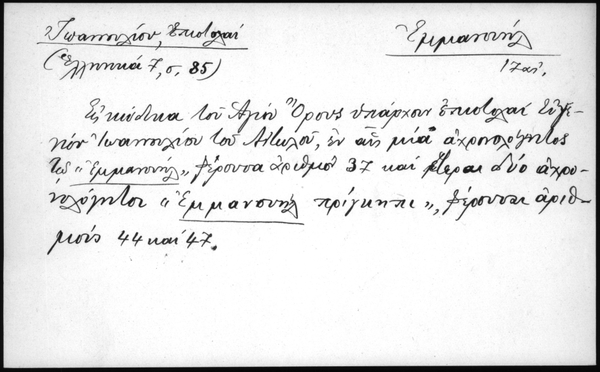 Ἰωαννουλίου, Ἐπιστολαί
Ἐμμανουήλ
(Ἑλληνικά 7, σ. 85)
17 αἰ.
Εἰς κώδικα τοῦ Ἁγίου Ὄρους ὑπάρχουν ἐπιστολαί Εὐγε-
νίου Ἰωαννουλίου τοῦ Αἰτωλοῦ, ἐν αἷς μία ἀχρονολόγητος
τῷ «Ἐμμανουήλ», φέρουσα ἀριθμόν 37 καί ἕτεραι δύο ἀχρο-
νολόγητοι «Ἐμμανουήλ πρίγκηπι», φέρουσαι ἀριθ-
μούς 44 καί 47.